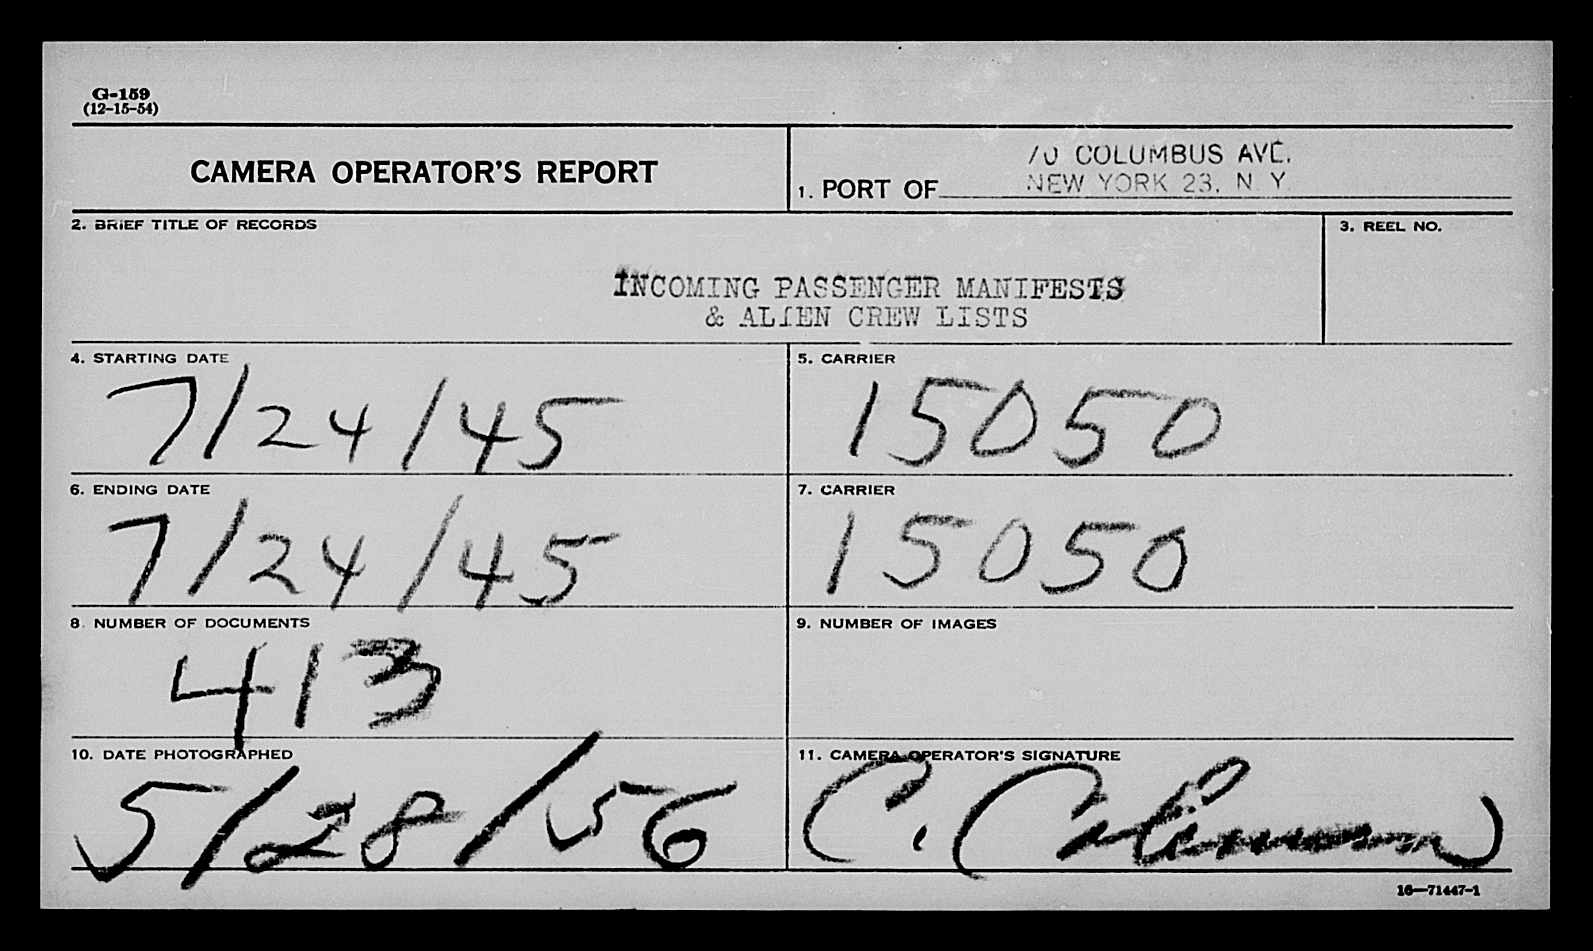 G-159
(12-15-54)
CAMERA OPERATOR'S REPORT
70 COLUMBUS AVE.
1. PORT OF NEW YORK 23, N. Y.
2. BRIEF TITLE OF RECORDS
3. REEL NO.
INCOMING PASSENGER MANIFESTS
& ALIEN CREW LISTS
4. STARTING DATE
7/24/45
5. CARRIER
15050
6. ENDING DATE
7/24/45
7. CARRIER
15050
8. NUMBER OF DOCUMENTS
413
9. NUMBER OF IMAGES
10. DATE PHOTOGRAPHED
5/28/56
11. CAMERA OPERATOR'S SIGNATURE
C.
16—71447-1